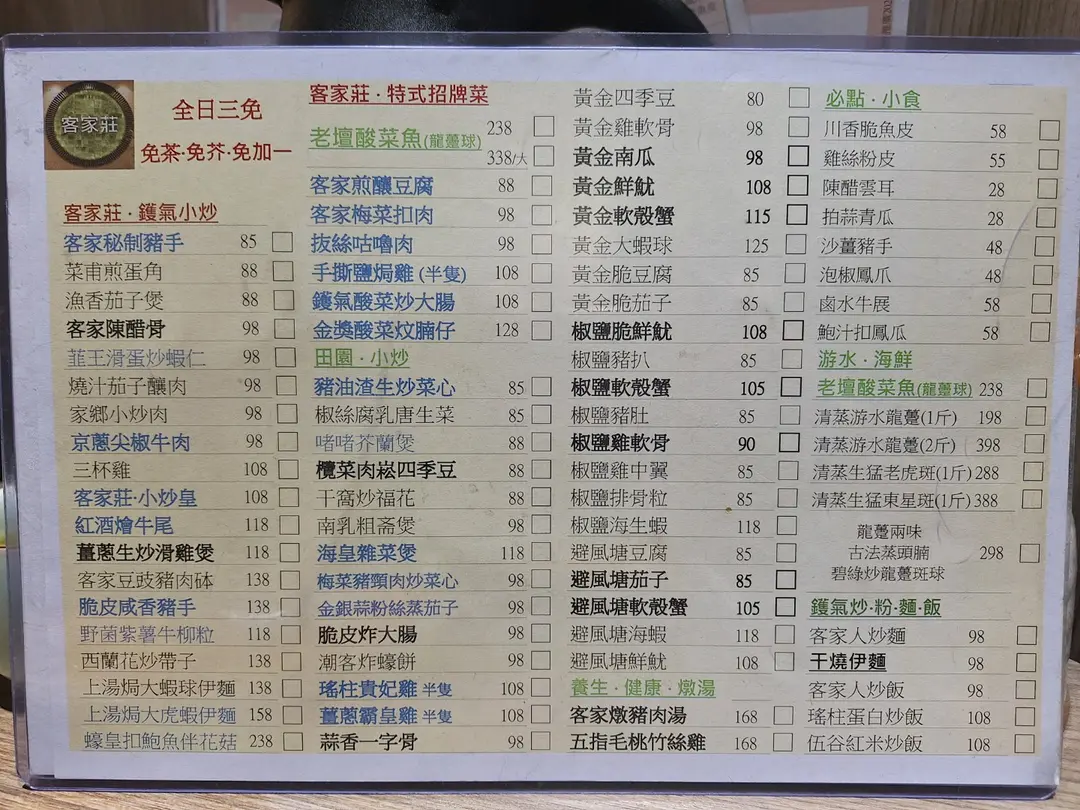 客家莊
全日三免
免茶·免芥·免加一
客家莊·鑊氣小炒
客家秘制豬手 85
菜甫煎蛋角 88
漁香茄子煲 88
客家陳醋骨 98
韮王滑蛋炒蝦仁 98
燒汁茄子釀肉 98
家鄉小炒肉 98
京蔥尖椒牛肉 98
三杯雞 108
客家莊·小炒皇 108
紅酒燴牛尾 118
薑蔥生炒滑雞煲 118
客家豆豉豬肉砵 138
脆皮咸香豬手 138
野菌紫薯牛柳粒 118
西蘭花炒帶子 138
上湯焗大蝦球伊麵 138
上湯焗大虎蝦伊麵 158
蠔皇扣鮑魚伴花菇 238
客家莊·特式招牌菜
老壇酸菜魚(龍躉球) 238
338/大
客家煎釀豆腐 88
客家梅菜扣肉 98
拔絲咕嚕肉 98
手撕鹽焗雞(半隻) 108
鑊氣酸菜炒大腸 108
金獎酸菜炆腩仔 128
田園·小炒
豬油渣生炒菜心 85
椒絲腐乳唐生菜 85
啫啫芥蘭煲 88
欖菜肉崧四季豆 88
干窩炒福花 88
南乳粗斋煲 98
海皇雜菜煲 118
梅菜豬頸肉炒菜心 98
金銀蒜粉絲蒸茄子 98
脆皮炸大腸 98
潮客炸蠔餅 98
瑤柱貴妃雞 半隻 108
薑蔥霸皇雞 半隻 108
蒜香一字骨 98
黃金四季豆 80
黃金雞軟骨 98
黃金南瓜 98
黃金鮮魷 108
黃金軟殼蟹 115
黃金大蝦球 125
黃金脆豆腐 85
黃金脆茄子 85
椒鹽脆鮮魷 108
椒鹽豬扒 85
椒鹽軟殼蟹 105
椒鹽豬肚 85
椒鹽雞軟骨 90
椒鹽雞中翼 85
椒鹽排骨粒 85
椒鹽海生蝦 118
避風塘豆腐 85
避風塘茄子 85
避風塘軟殼蟹 105
避風塘海蝦 118
避風塘鮮魷 108
養生·健康·燉湯
客家燉豬肉湯 168
五指毛桃竹絲雞 168
必點·小食
川香脆魚皮 58
雞絲粉皮 55
陳醋雲耳 28
拍蒜青瓜 28
沙薑豬手 48
泡椒鳳爪 48
鹵水牛展 58
鮑汁扣鳳瓜 58
游水·海鮮
老壇酸菜魚(龍躉球) 238
清蒸游水龍躉(1斤) 198
清蒸游水龍躉(2斤) 398
清蒸生猛老虎斑(1斤) 288
清蒸生猛東星斑(1斤) 388
龍躉兩味
古法蒸頭腩 298
碧綠炒龍躉斑球
鑊氣炒·粉·麵·飯
客家人炒麵 98
干燒伊麵 98
客家人炒飯 98
瑤柱蛋白炒飯 108
伍谷紅米炒飯 108